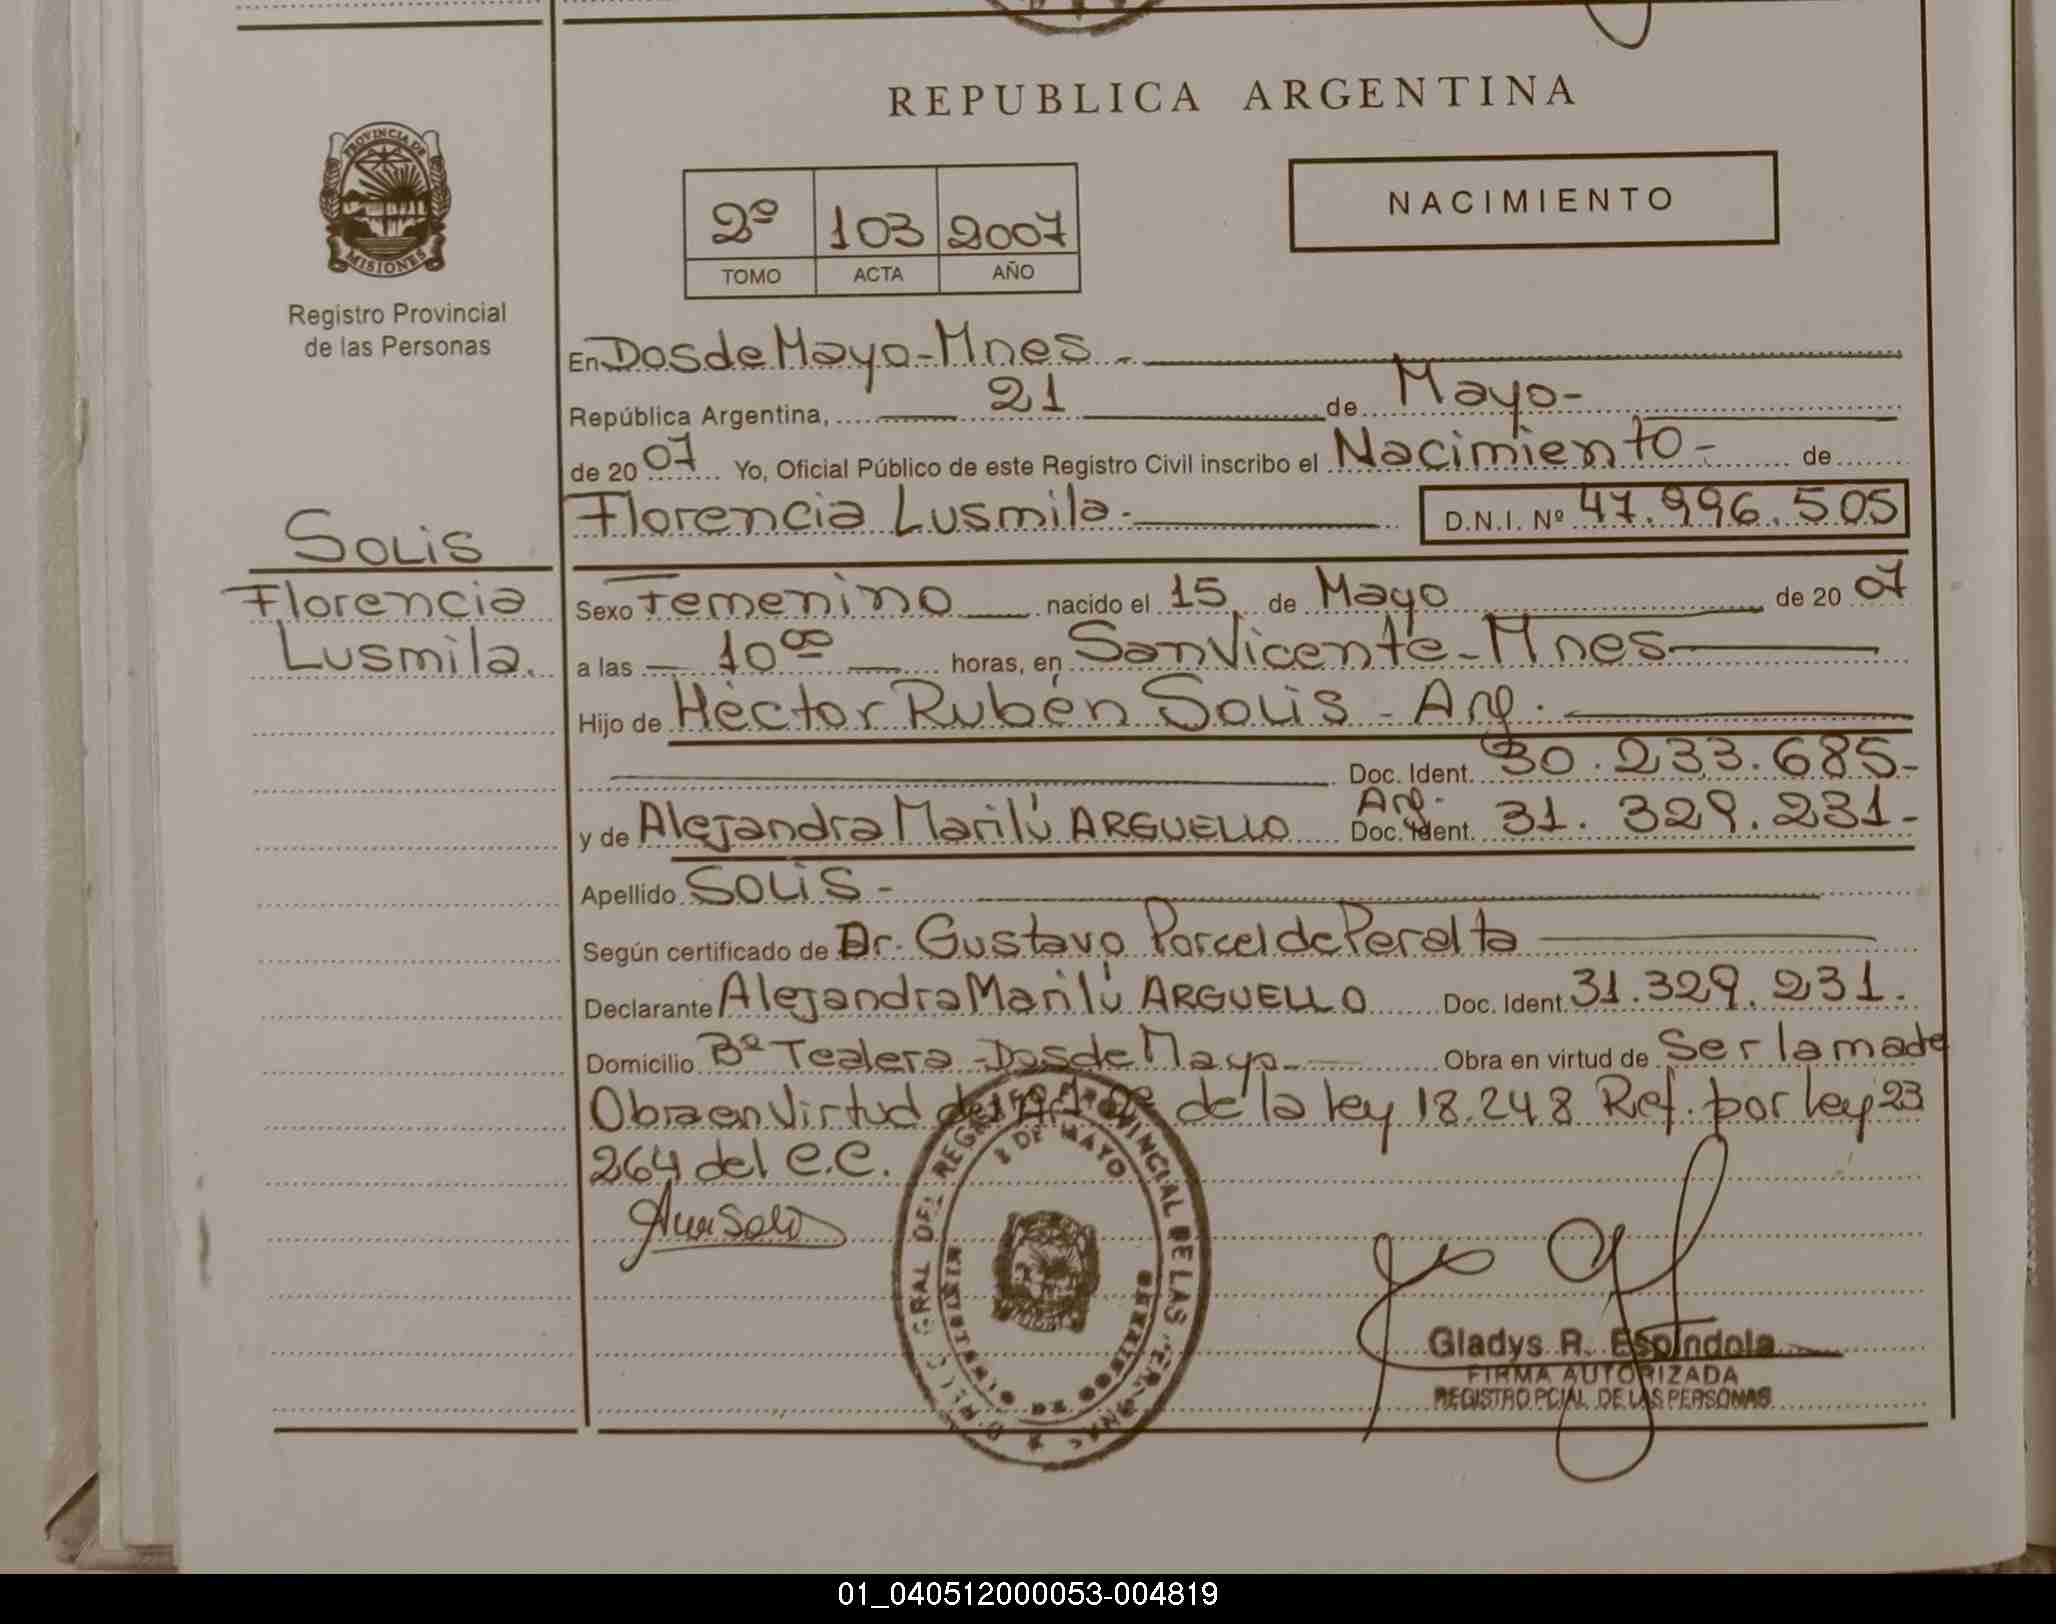 REPUBLICA ARGENTINA
NACIMIENTO
2º 103 2007
TOMO ACTA AÑO
PROVINCIA DE
MISIONES
Registro Provincial
de las Personas
Solis
Florencia
Lusmila.
En Dos de Mayo - Mnes -
República Argentina, 21 de Mayo -
de 20 07 Yo, Oficial Público de este Registro Civil inscribo el Nacimiento - de
Florencia Lusmila - D.N.I. Nº 47.996.505
Sexo Femenino nacido el 15 de Mayo de 20 07
a las 10 00 horas, en San Vicente - Mnes
Hijo de Héctor Rubén Solis - Arg.
Doc. Ident. 30.233.685-
Arg.
y de Alejandra Marilú ARGUELLO Doc. Ident. 31.329.231-
Apellido Solis -
Según certificado de Dr. Gustavo Porcel de Peralta
Declarante Alejandra Marilú ARGUELLO Doc. Ident. 31.329.231.
Domicilio Bº Tealera - Dos de Mayo - Obra en virtud de Ser la madre
Obra en Virtud del Art 2º de la ley 18.248 Ref. por ley 23
264 del C.C.
2 DE MAYO
Gladys R. Espindola
FIRMA AUTORIZADA
REGISTRO PCIAL DE LAS PERSONAS
01_040512000053-004819